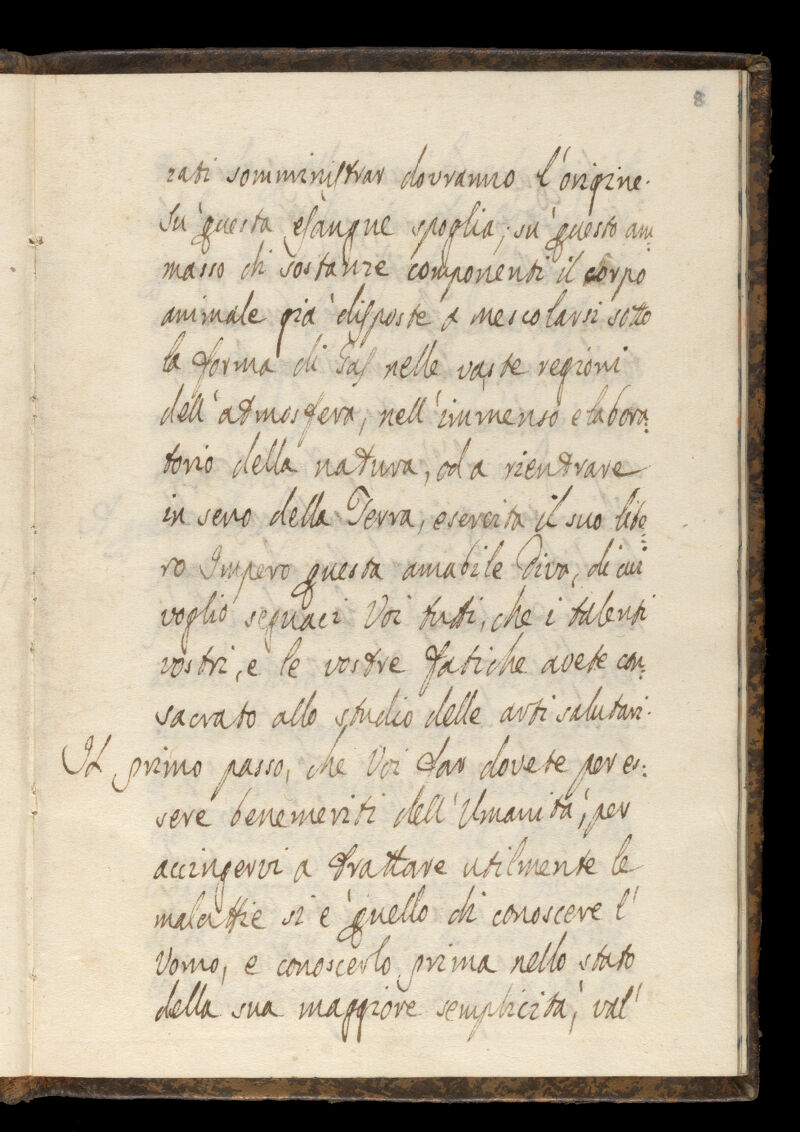 8
rati somministrar dovranno l'origine.
Su' questa esangue spoglia, su' questo am=
masso di sostanze componenti il corpo
animale già disposte a mescolarsi sotto
la forma di Gas nelle vaste regioni
dell'atmosfera, nell'immenso elabora=
torio della natura, od a rientrare
in seno della Terra, esercita il suo libe=
ro Impero questa amabile Diva, di cui
voglio seguaci Voi tutti, che i talenti
vostri, e le vostre fatiche avete con=
sacrato allo studio delle arti salutari.
Il primo passo, che Voi far dovete per es=
sere benemeriti dell'Umanità, per
accingervi a trattare utilmente le
malattie si è quello di conoscere l'
Uomo, e conoscerlo prima nello stato
della sua maggiore semplicità, val'